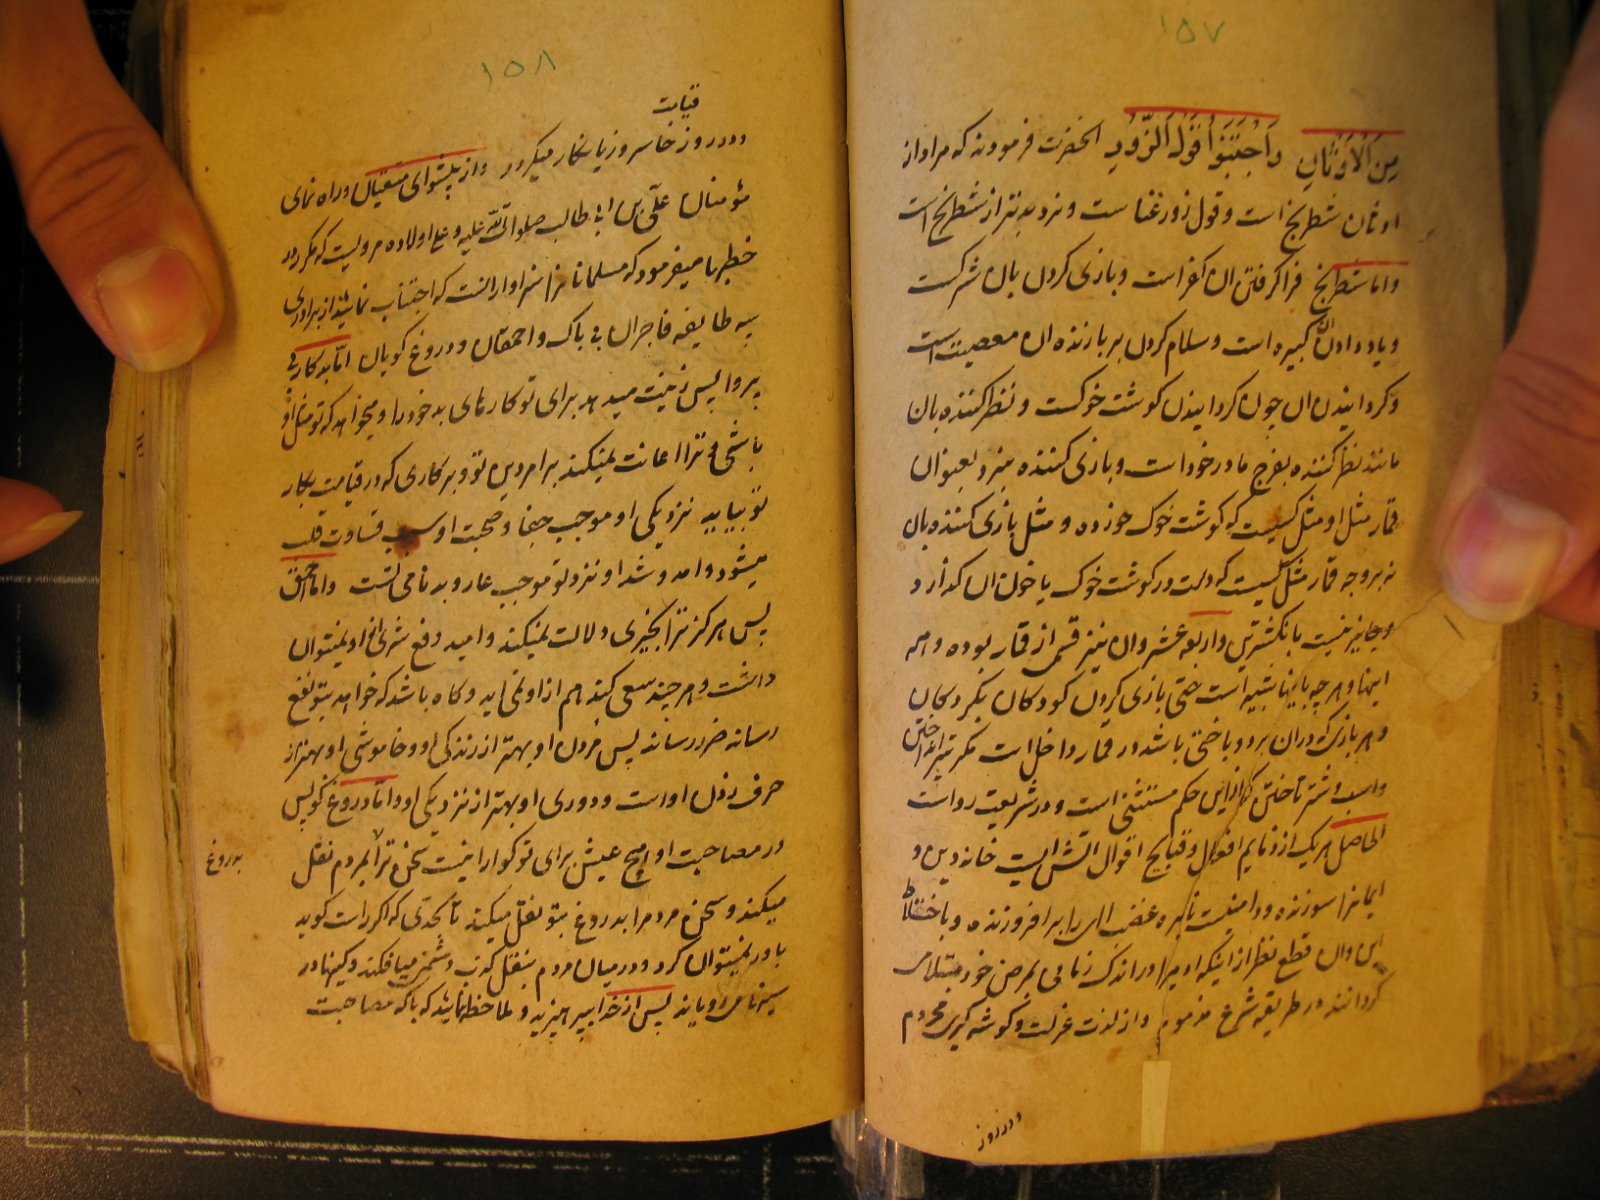 ۱۵۷
مِنَ الْاَوْثَانِ وَاجْتَنِبُوْا قَوْلَ الزُّوْرِ انحضرت فرمودند که مراد از
اوثان شطرنج است و قول زور غناست و نرد بدتر از شطرنج است
واما شطرنج فرا گرفتن ان کفر است و بازی کردن بان شرکست
و یاد دادن ان کبیره است و سلام کردن بر بازنده ان معصیت است
و گردانیدن ان چون گردانیدن گوشت خوکست و نظر کننده بان
مانند نظر کننده بفرج مادر خود است و بازی کننده بنرد بعنوان
قمار مثل او مثل کسیست که گوشت خوک خورده و مثل بازی کننده بان
نه بر وجه قمار مثل کسیست که دست در گوشت خوک یا خون ان گذارد
و جایز نیست بانگشترین و اربعه عشر و ان نیز قسمی از قمار بوده و همه
اینها و هر چه باینها شبیه است حتی بازی کردن کودکان بگردکان
و هر بازی که در ان برد و باختی باشد در قمار داخل است مگر تیر انداختن
و اسب و شتر تاختن که از این حکم مستثنی است و در شریعت رواست
الحاصل هر یک از ذمایم افعال و قبایح اقوال اتشیست خانه دین و
ایمانرا سوزنده و دامنیست نایره غضب الهی را بر افروزنده و باختلاط
این وان قطع نظر از اینکه ادمیرا در اندک زمانی بمرض خود مبتلا می
گردانند در طریقه شرع مذموم و از لذت عزلت و گوشه گیری محروم
و در روز
۱۵۸
قیامت
و در روز خاسر و زیانکار میگردد و از پیشوای متقیان و راه نمای
مؤمنان علی بن ابی طالب صلوات الله علیه و علی اولاده مرویست که مکرر در
خطبها میفرمود که مسلمانانرا سزاوار انست که اجتناب نمایند از برادری
سه طایفه فاجران بی باک و احمقان و دروغ گویان اما بدکار بی
پروا پس زینت میدهد برای تو کارهای بد خود را و میخواهد که تو مثل او
باشی و ترا اعانت نمیکند بر امر دین تو و بر کاری که در قیامت بکار
تو بیاید نزدیکی او موجب جفا و صحبت او سبب قساوت قلب
میشود و امد و شد او نزد تو موجب عار و بدنامی تست و اما احمق
پس هرگز ترا بخیری دلالت نمیکند و امید دفع شری از او نمیتوان
داشت و هر چند سعی کند هم از او نمی اید و گاه باشد که خواهد بتو نفع
رساند ضرر رساند پس مردن او بهتر از زندگی او و خاموشی او بهتر از
حرف زدن او است و دوری او بهتر از نزدیکی او و اما دروغ گو پس
در مصاحبت او هیچ عیش برای تو گوارا نیست سخن ترا بمردم نقل
بدروغ
میکند و سخن مردم را بدروغ بتو نقل میکند تا بحدی که اگر راست گوید
باور نمیتوان کرد و در میان مردم بنقل کذب دشمنی میافکند و کینها در
سینها میرویاند پس از خدا بپرهیزید و ملاحظه نمایند که با که مصاحبت